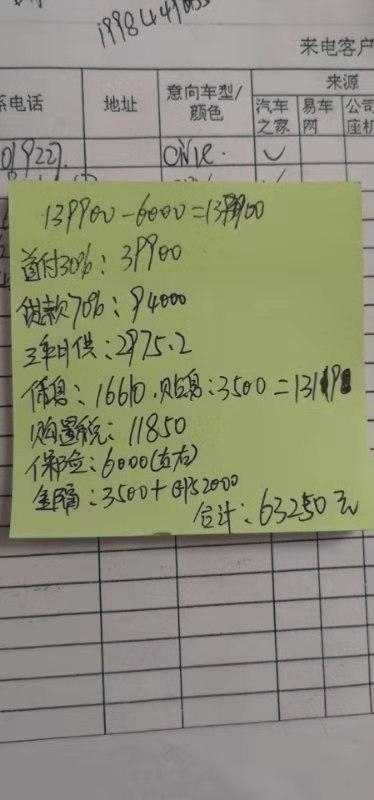 来电客户
系电话 地址 意向车型/ 来源
颜色 汽车 易车 公司
之家 网 座机
139900-6000=133900
首付30%:39900
贷款70%:94000
三年月供:2975.2
息:16610.贴息:3500=13110
购置税:11850
保险:6000(左右)
金融:3500+GPS2000
合计:63250元